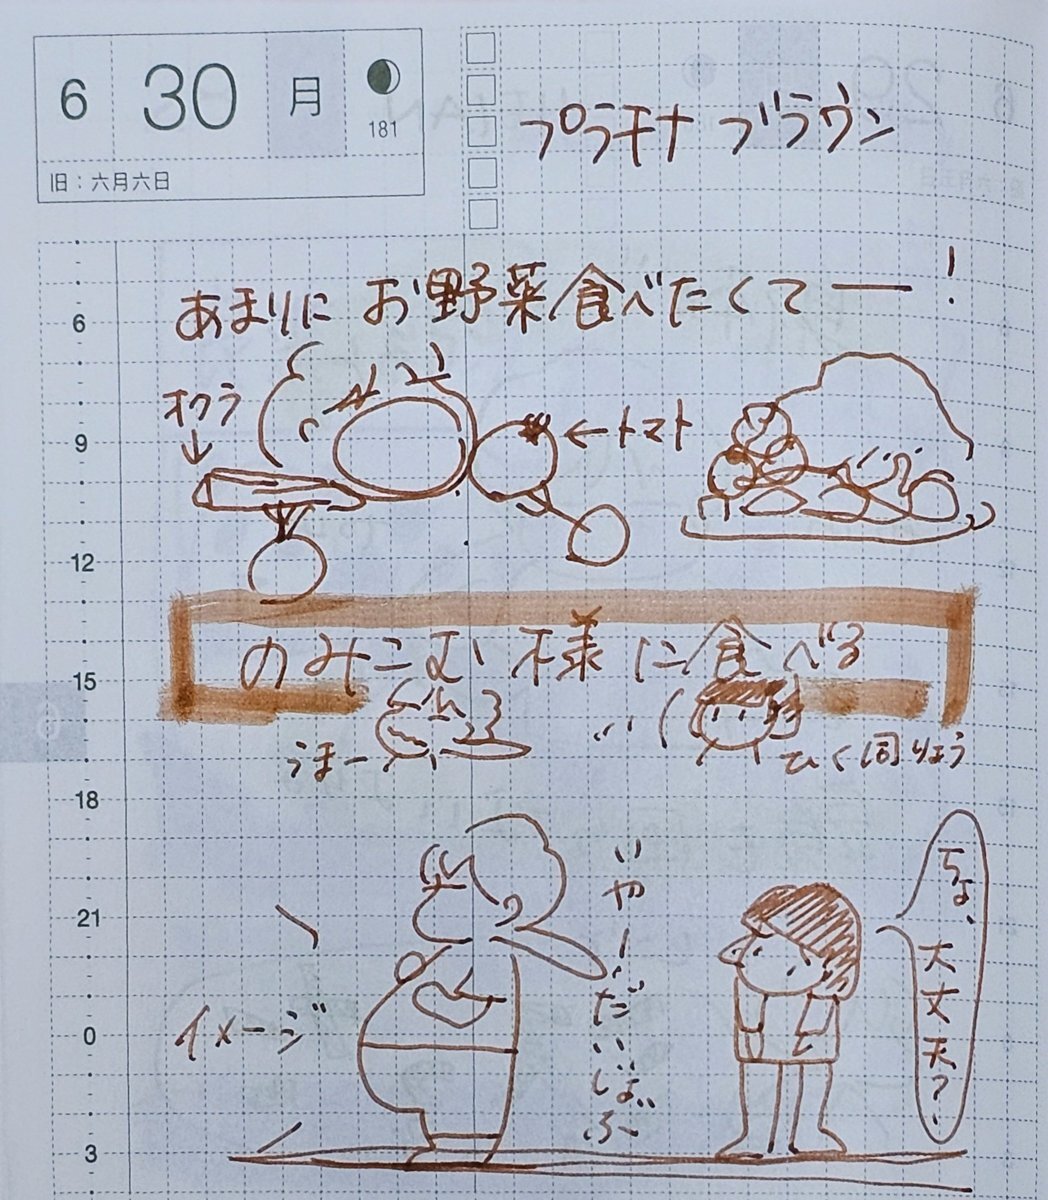 6 30 月
181
旧：六月六日
プラチナ ブラウン
あまりに お野菜食べたくてー！
オクラ
←トマト
のみこむ様に食べる
うまー
ひく同りょう
ちょ、大丈夫？
いやーだいじょぶー
イメージ
6
9
12
15
18
21
0
3
6